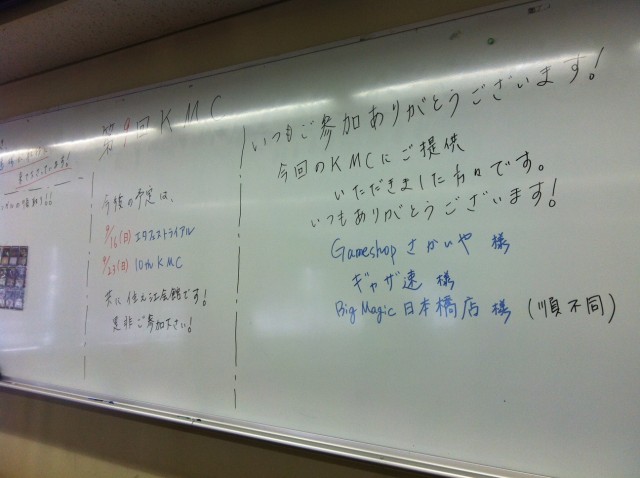 第9回KMC
今後の予定は、
9/16(日) エタフェストトライアル
9/23(日) 10th KMC
共に 住之江会館です!
是非ご参加下さい!
いつもご参加ありがとうございます!
今回のKMCにご提供
いただきました方々です。
いつもありがとうございます!
Gameshop さかいや 様
ギャザ速 様
Big Magic 日本橋店 様 (順不同)